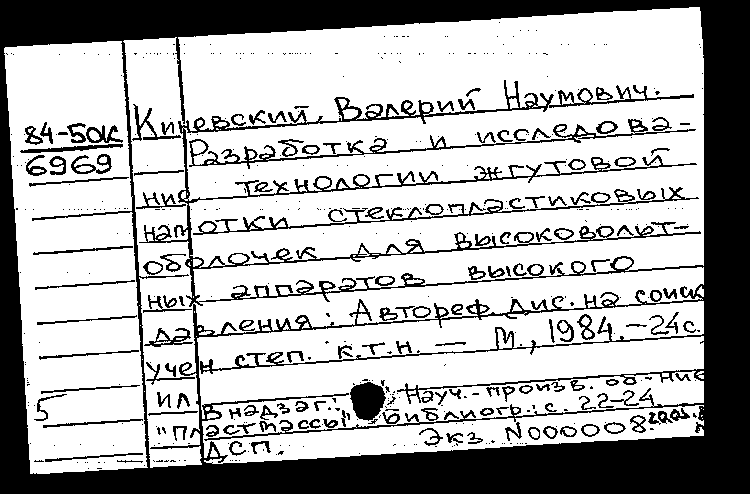 Киневский, Валерий Наумович.
84-5ок
6969
Разработка и исследова-
ние технологии жгутовой
намотки стеклопластиковых
оболочек для высоковольт-
ных аппаратов высокого
давления: Автореф. дис. на соиск
учен степ. к.т.н. — М., 1984.-24с.
ил.
5
В надзаг.: Науч.-произв. об-ние
"Пластмассы". Библиогр.: с. 22-24.
ДСП. Экз. N000008.